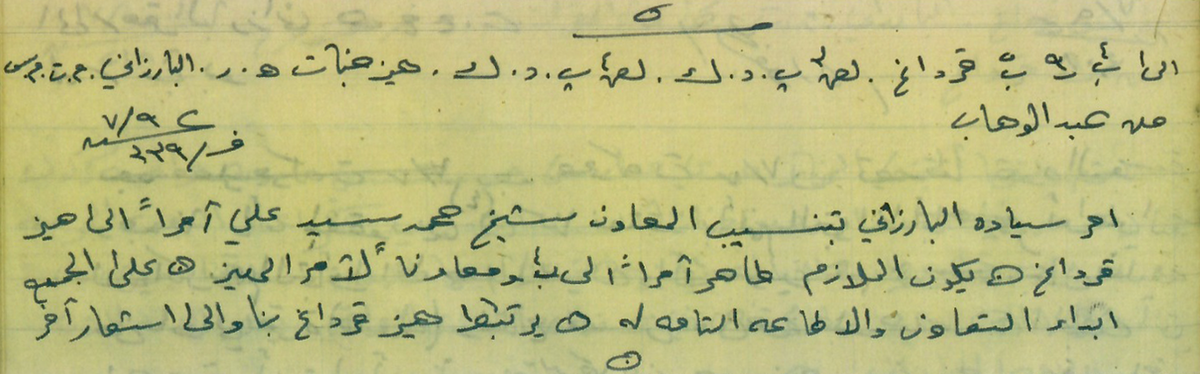 ٥
الى ١ ب ٩ ب ٥ قرداغ . لص ب . د . ك . لص ب . د . ك . هيز خبات ه . ر . البارزاني . م . ت . م . س
من عبد الوهاب
٧/٩
ف/٣٣٩
امر سياده البارزاني بتنسيب المعاون شيخ محمد سيد علي آمراً الى هيز
قرداغ ه يكون الملازم طاهر آمراً الى ب ومعاوناً لآمر الهيز ه على الجميع
ابداء التعاون والاطاعه التامه له ه يرتبط هيز قرداغ بنا والى اشعار آخر
ن